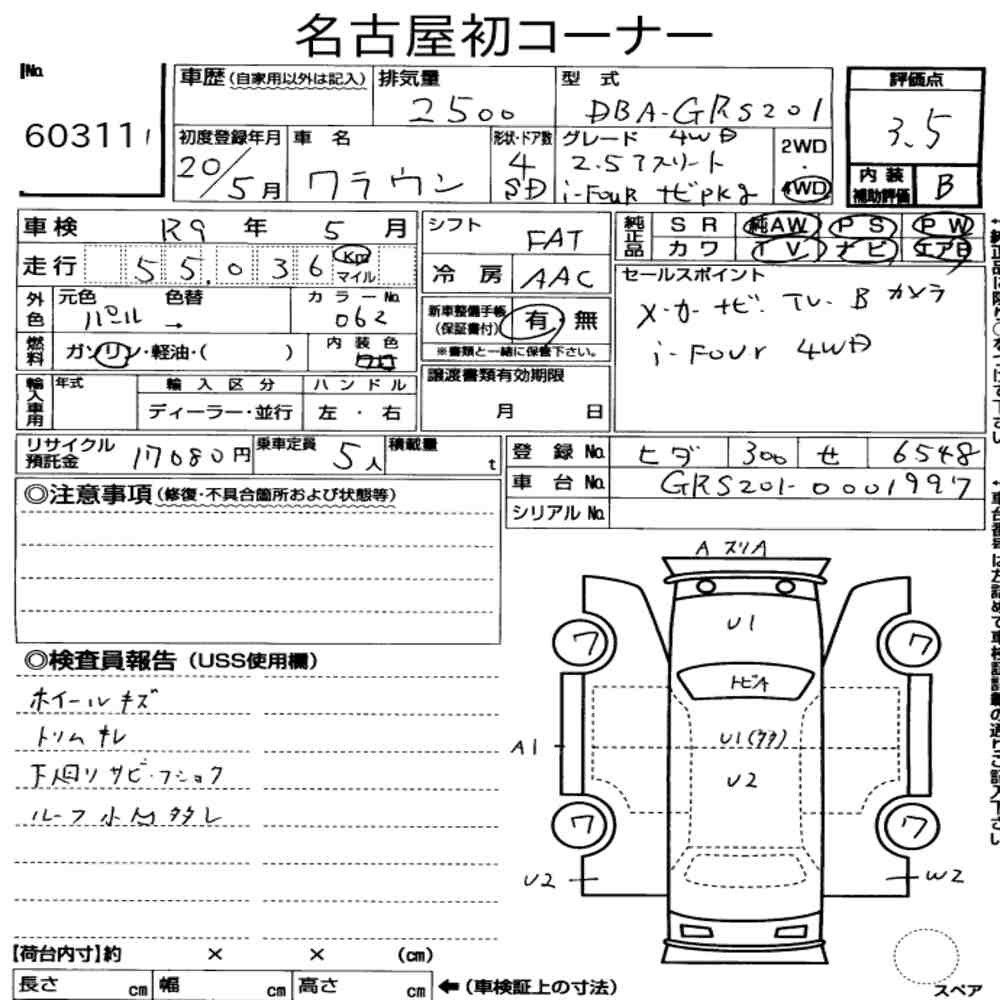 名古屋初コーナー
No.
60311
車歴 (自家用以外は記入)
排気量
2500
型 式
DBA-GRS201
評価点
3.5
内装
補助評価
B
初度登録年月
20/5月
車 名
クラウン
形状・ドア数
4
SD
グレード 4WD
2.5アスリート
i-Four ナビpkg
2WD
・
4WD
車検 R9 年 5 月
走行 55.036 Km
マイル
外色
元色 色替
パール →
カラーNo.
062
燃料
ガソリン・軽油・( )
内装色
クロ
輸入車用
年式
輸入区分
ディーラー・並行
ハンドル
左 ・ 右
シフト FAT
冷房 AAC
新車整備手帳
(保証書付)
有・無
※書類と一緒に保管下さい。
譲渡書類有効期限
月 日
純正品
SR 純AW PS PW
カワ TV ナビ エアB
セールスポイント
メーカーナビ. TV. Bカメラ
i-Four 4WD
リサイクル
預託金
17080円
乗車定員
5人
積載量
t
登録No. ヒダ 300 せ 6548
車台No. GRS201-0001997
シリアルNo.
◎注意事項 (修復・不具合箇所および状態等)
◎検査員報告 (USS使用欄)
ホイールキズ
トリムキレ
下廻りサビ・フショク
ルーフ小凹多レ
A スリA
U1
トビA
U1(多々)
U2
A1
U2
W2
ワ
ワ
ワ
ワ
スペア
【荷台内寸】約 × × (cm)
長さ cm 幅 cm 高さ cm
←(車検証上の寸法)